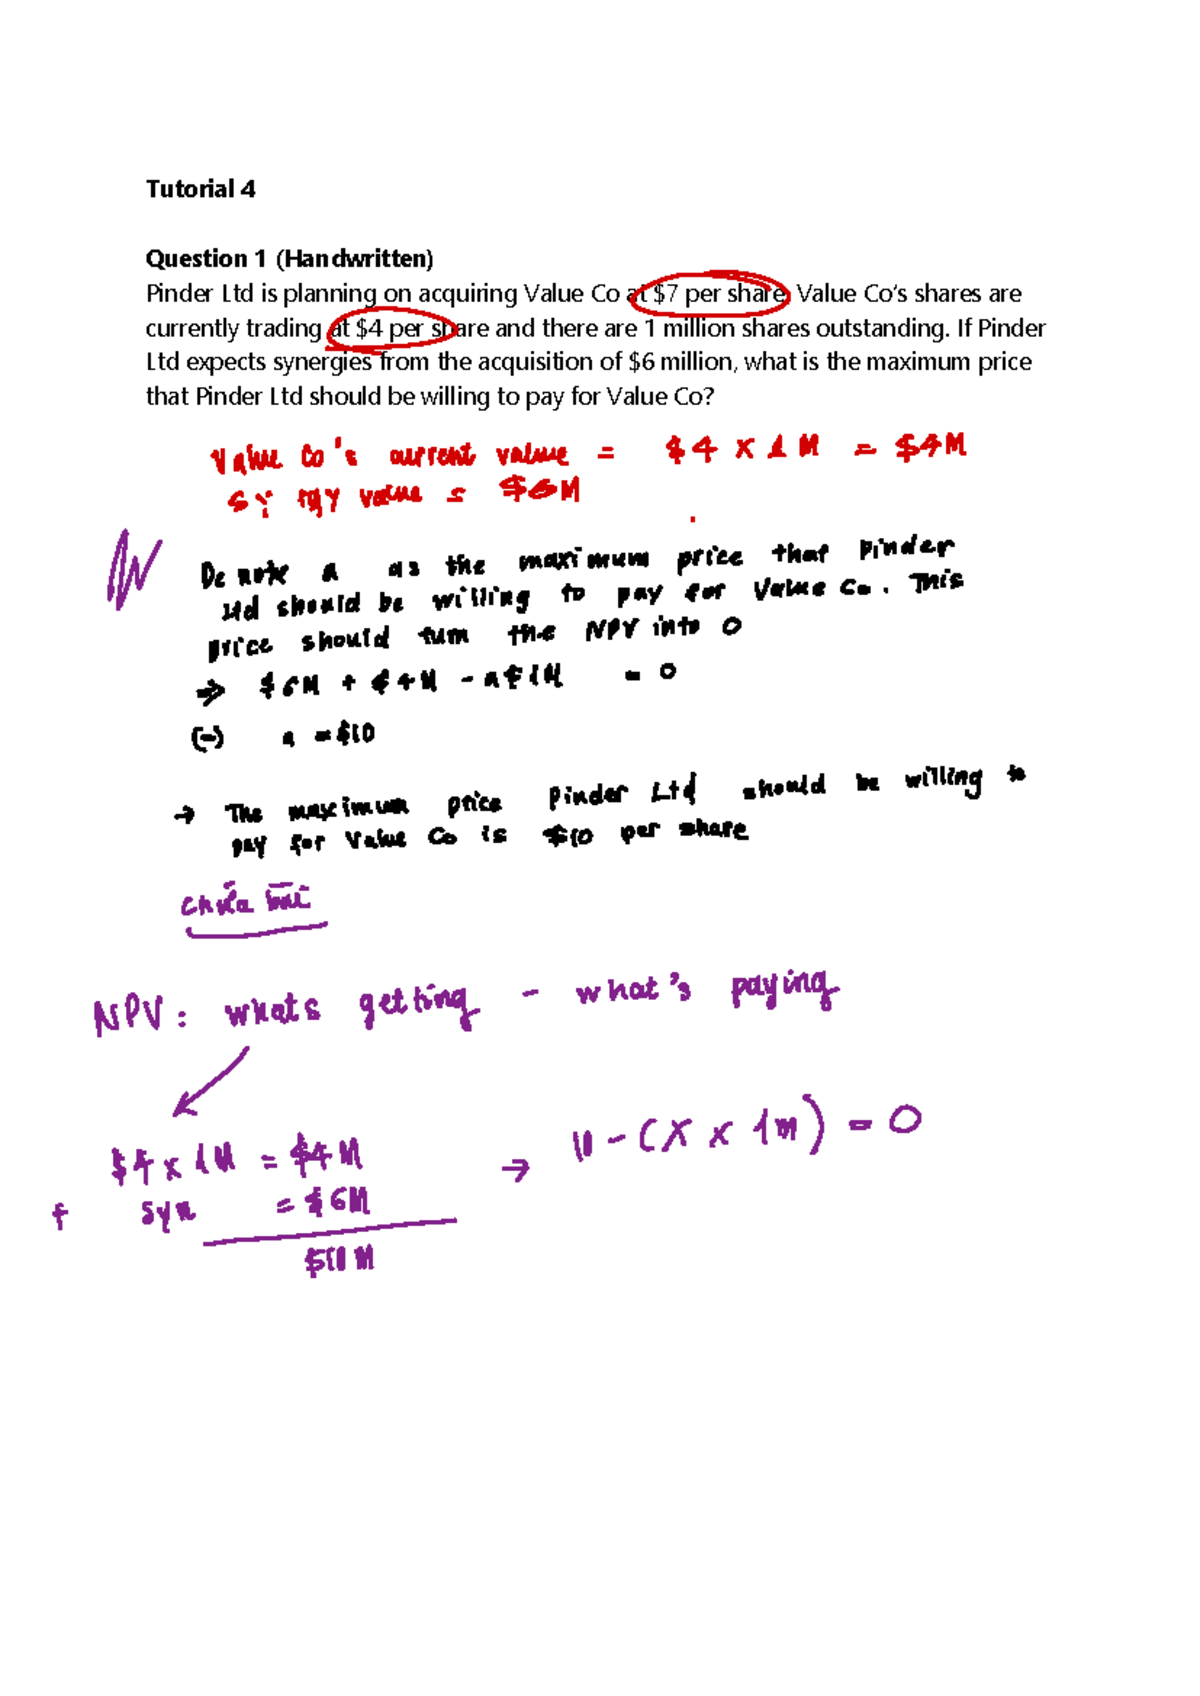 Tutorial 4
Question 1 (Handwritten)
Pinder Ltd is planning on acquiring Value Co at $7 per share. Value Co's shares are
currently trading at $4 per share and there are 1 million shares outstanding. If Pinder
Ltd expects synergies from the acquisition of $6 million, what is the maximum price
that Pinder Ltd should be willing to pay for Value Co?
Value Co's current value = $4 x 1M = $4M
value = $6M
Denote a as the maximum price that Pinder
Ltd should be willing to pay for Value Co. This
price should turn the NPV into 0
⇒ $6M + $4M - a 1M = 0
(-) a = $10
→ The maximum price Pinder Ltd should be willing to
pay for Value Co is $10 per share
chữa bài
NPV: whats getting - what's paying
$4 x 1M = $4M
+ syn = $6M
$10M
→ 10 - (X x 1m) = 0